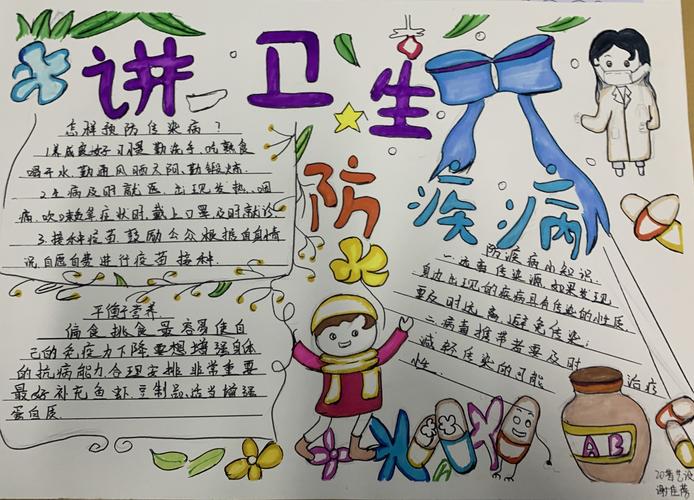 讲卫生
防疾病
怎样预防传染病？
1.养成良好习惯勤洗手,吃熟食
喝干水,勤通风晒太阳,勤锻炼.
2.生病及时就医.出现发热,咽
痛.吹嗽等症状时.戴上口罩及时就诊
3.接种疫苗.鼓励公众根据自身情
况自愿自费进行疫苗接种.
平衡营养.
偏食挑食最容易使自
己的免疫力下降要想增强自体
的抗病能力合理安排非常重要
最好补充鱼虾豆制品.适当增强
蛋白质.
防疾病小知识.
一.远离传染源.如果发现
身边出现的疾病具有传染的性质.
要及时远离避免传染;
二.病毒携带者要及时治疗
减怀传染的可能
性.
AB